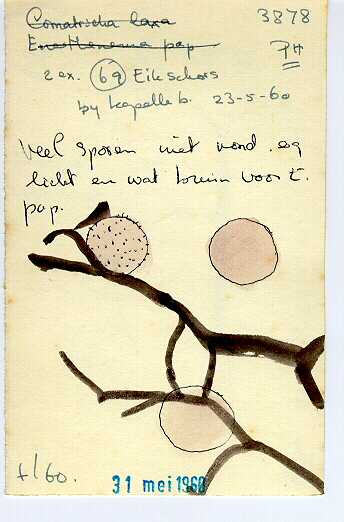 Comatricha laxa 3878
Enerthenema pap. PH
2 ex. 69 Eikschors
by kapelle b. 23-5-60
Veel sporen niet rond. eg
licht en wat bruin voor E.
pap.
f/60.
31 mei 1960